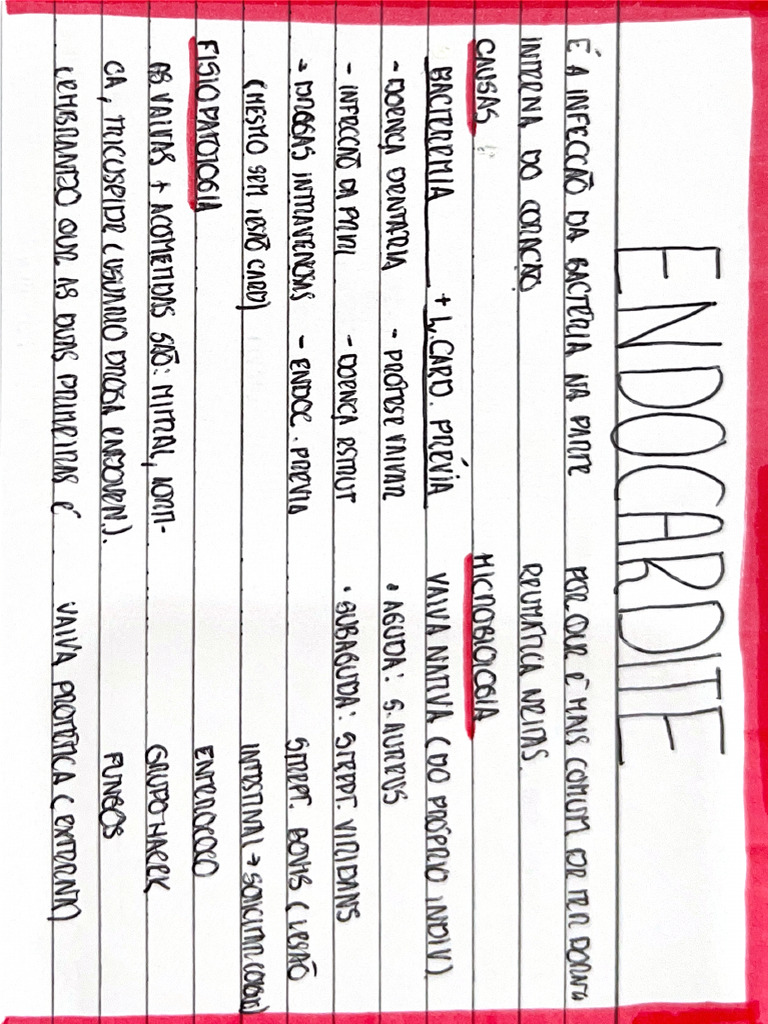 ENDOCARDITE
É A INFECCÃO DA BACTÉRIA NA PARTE
INTERNA DO CORAÇÃO
CAUSAS
BACTEREMIA + L. CARD. PRÉVIA
- DOENÇA DENTARIA - PROTESE VALVAR
- INFECÇÃO DA PELE - DOENÇA ESTRUT
→ DROGAS INTRAVENOSAS - ENDOC. PREVIA
(MESMO SEM LESÃO CARD)
FISIOPATOLOGIA
AS VALVAS + ACOMETIDAS SÃO: MITRAL, AORTI-
CA, TRICUSPIDE (USUARIO DROGA ENDOVEN.).
LEMBRANDO QUE AS DUAS PRIMEIRAS É
POR QUE É MAIS COMUM DE TER DOENÇA
REUMATICA NELAS.
MICROBIOLOGIA
VALVA NATIVA (DO PRÓPRIO INDIV)
• AGUDA: S. AUREUS
• SUBAGUDA: STREPT. VIRIDANS
STREPT. BOVIS (LESÃO
INTESTINAL → SOLICITAR COLONO)
ENTEROCOCO
GRUPO HACEK
FUNGOS
VALVA PROTÉTICA (EXTERNA)